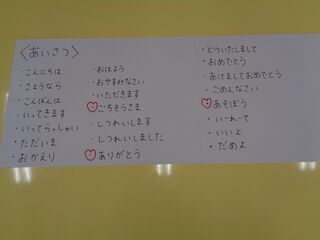 〈あいさつ〉
・こんにちは
・さようなら
・こんばんは
・いってきます
・いってらっしゃい
・ただいま
・おかえり
・おはよう
・おやすみなさい
・いただきます
ごちそうさま
・しつれいします
・しつれいしました
ありがとう
・どういたしまして
・おめでとう
・あけましておめでとう
・ごめんなさい
あそぼう
・いーれーて
・いいよ
・だめよ